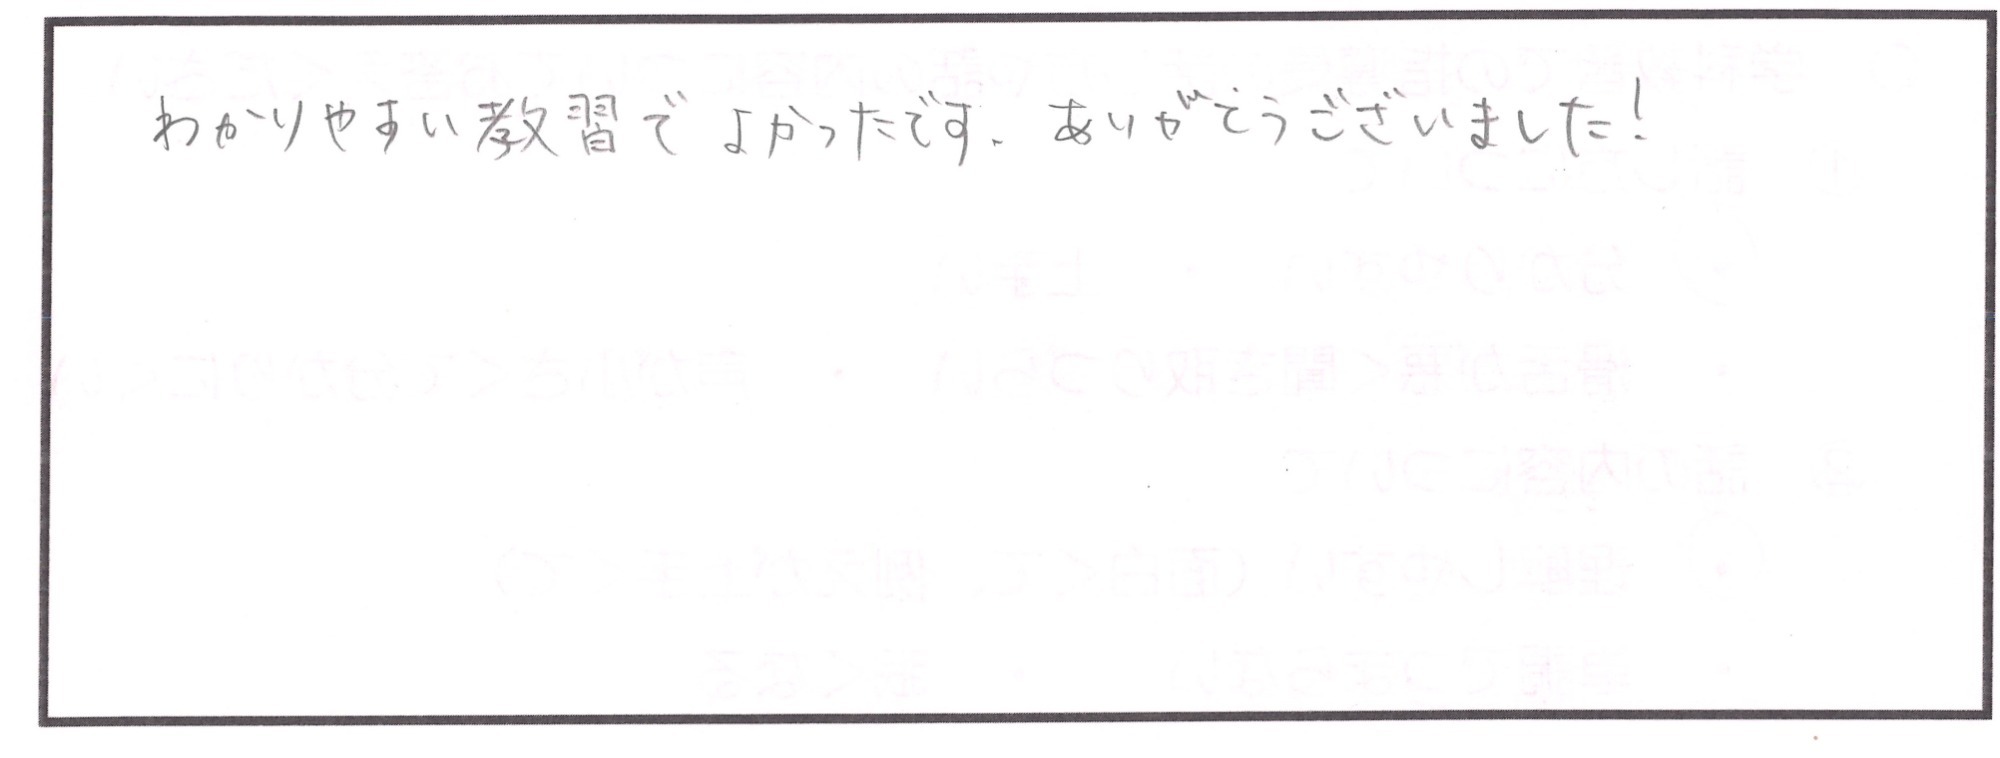 わかりやすい教習でよかったです。ありがとうございました!